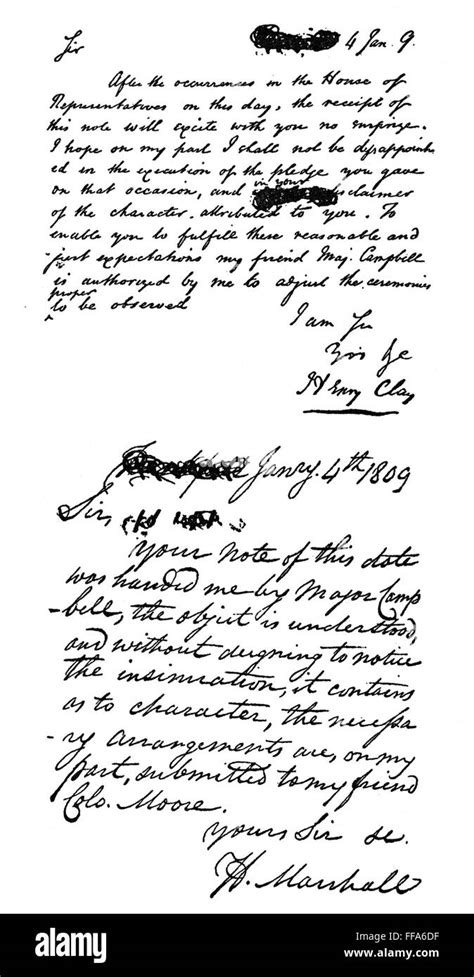 4 Jan. 9.
Sir
After the occurrences in the House of
Representatives on this day, the receipt of
this note will excite with you no surprize.
I hope on my part I shall not be disappoint
ed in the execution of the pledge you gave
on that occasion, and in your disclaimer
of the character attributed to you. To
enable you to fulfill these reasonable and
just expectations my friend Maj. Campbell
is authorized by me to adjust the ceremonies
proper to be observed
I am Sir
Yors &c
Henry Clay
Janry. 4th 1809
Sir,
Your note of this date
was handed me by Major Camp
bell, the object is understood,
and without deigning to notice
the insinuation, it contains
as to character, the necessa
-ry arrangements are, on my
part, submitted to my friend
Colo. Moore.
Yours Sir &c.
H. Marshall
a
alamy
alamy
Image ID: FFA6DF
www.alamy.com